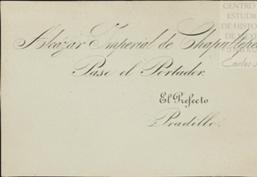 Alcázar Imperial de Chapultepec
Pase el Portador.
El Prefecto
Pradillo.
CENTRO
ESTUDI
DE HISTO
DE
Carlos